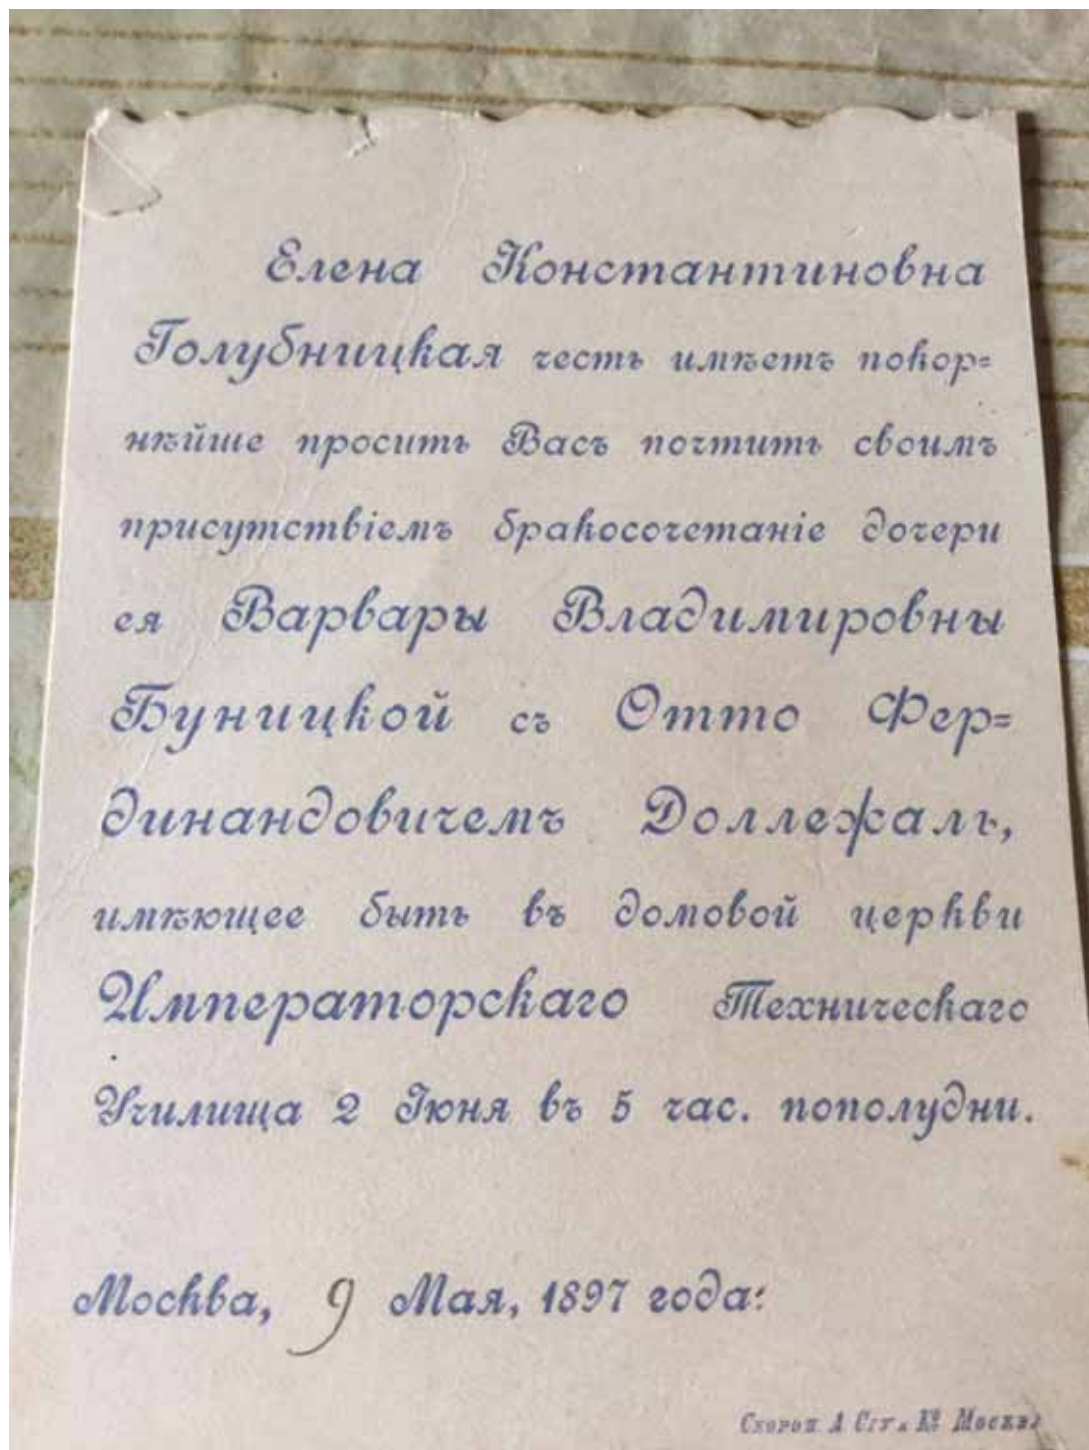 Елена Константиновна
Голубницкая честь имѣетъ покор=
нѣйше просить Васъ почтить своимъ
присутствіемъ бракосочетаніе дочери
ея Варвары Владимировны
Буницкой съ Отто Фер=
динандовичемъ Доллежалъ,
имѣющее быть въ домовой церкви
Императорскаго Техническаго
Училища 2 Іюня въ 5 час. пополудни.
Москва, 9 Мая, 1897 года:
Скороп. А К° Москва